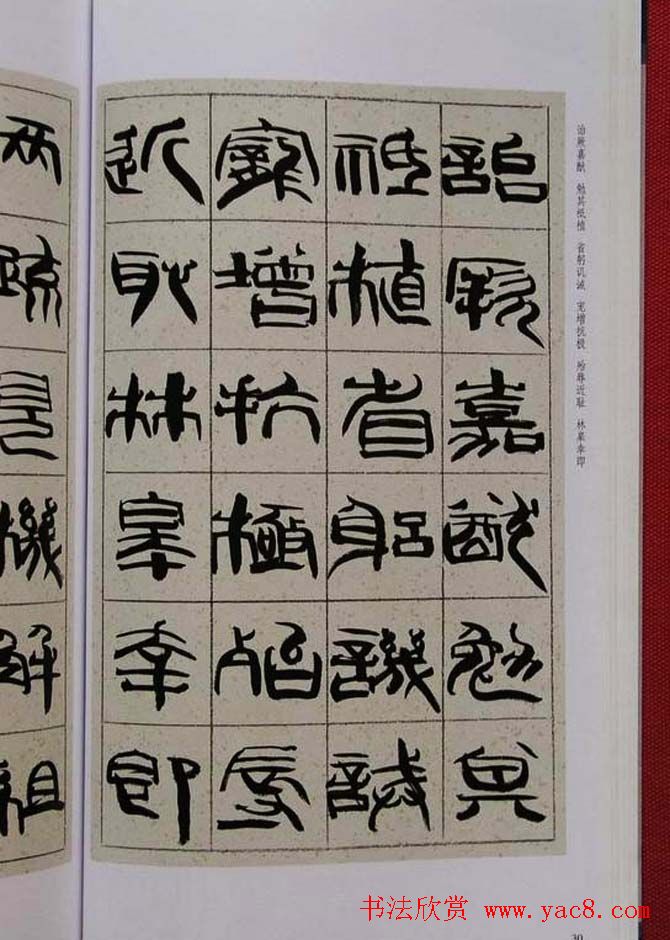 诒厥嘉猷 勉其祗植 省躬讥诫 宠增抗极 殆辱近耻 林皋幸即
詒厥嘉猷勉其
祗植省躬譏誡
寵增抗極殆辱
近恥林皋幸即
兩疏見機解組
30
书法欣赏 www.yac8.com